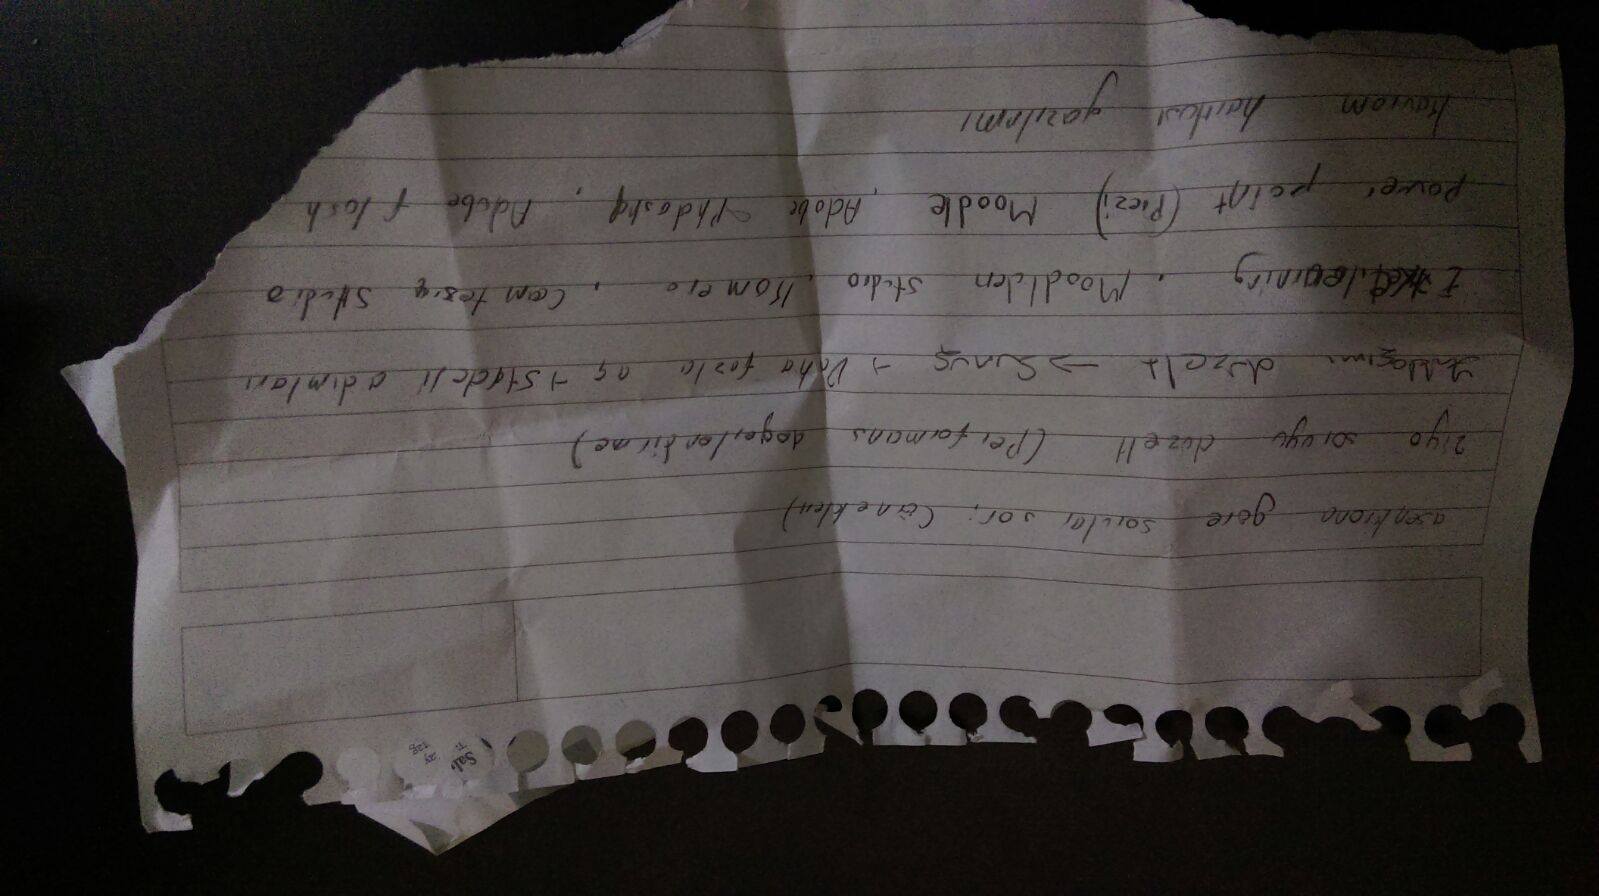 Salı
asenkrona göre sorular sor; (örnekler)
soruyu düzelt (Performans değerlendirme)
düzelt → Sunuş → Daha fazla aç → stadeji adımları
learning . Moodlden stüdyo . Kamera . Camtasia Studio
power point (Prezi) Moodle , Adobe Phdoshp , Adobe flash
kavram haritası yazılımı